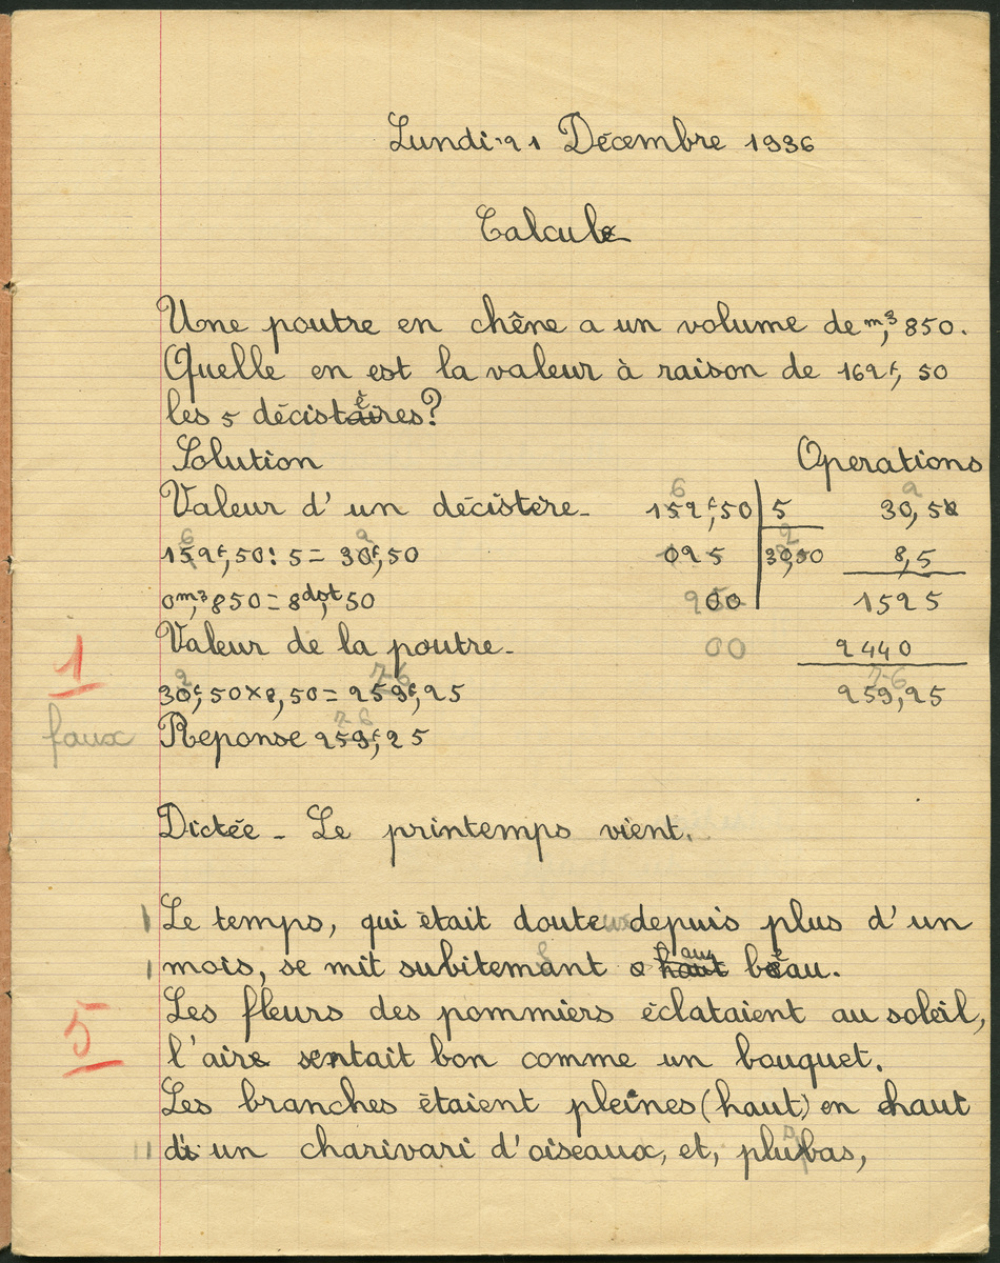 Lundi 21 Décembre 1936
Calcul
Une poutre en chêne a un volume de m³, 850.
Quelle en est la valeur à raison de 162f, 50
les 5 décistères?
Solution Operations
Valeur d'un décistère. 152f,50 5 30,5
152f,50 : 5 = 30f,50 025 30,50 8,5
0m³,850 = 8dst,50 00 1525
1 Valeur de la poutre. 00 2440
30f,50 x 8,50 = 259f,25 259,25
faux Reponse 259f,25
Dictée - Le printemps vient.
Le temps, qui était douteux depuis plus d'un
mois, se mit subitemant o beau.
5 Les fleurs des pommiers éclataient au soleil,
l'aire sentait bon comme un bouquet.
Les branches étaient pleines (haut) en haut
di un charivari d'oiseaux, et, plus bas,